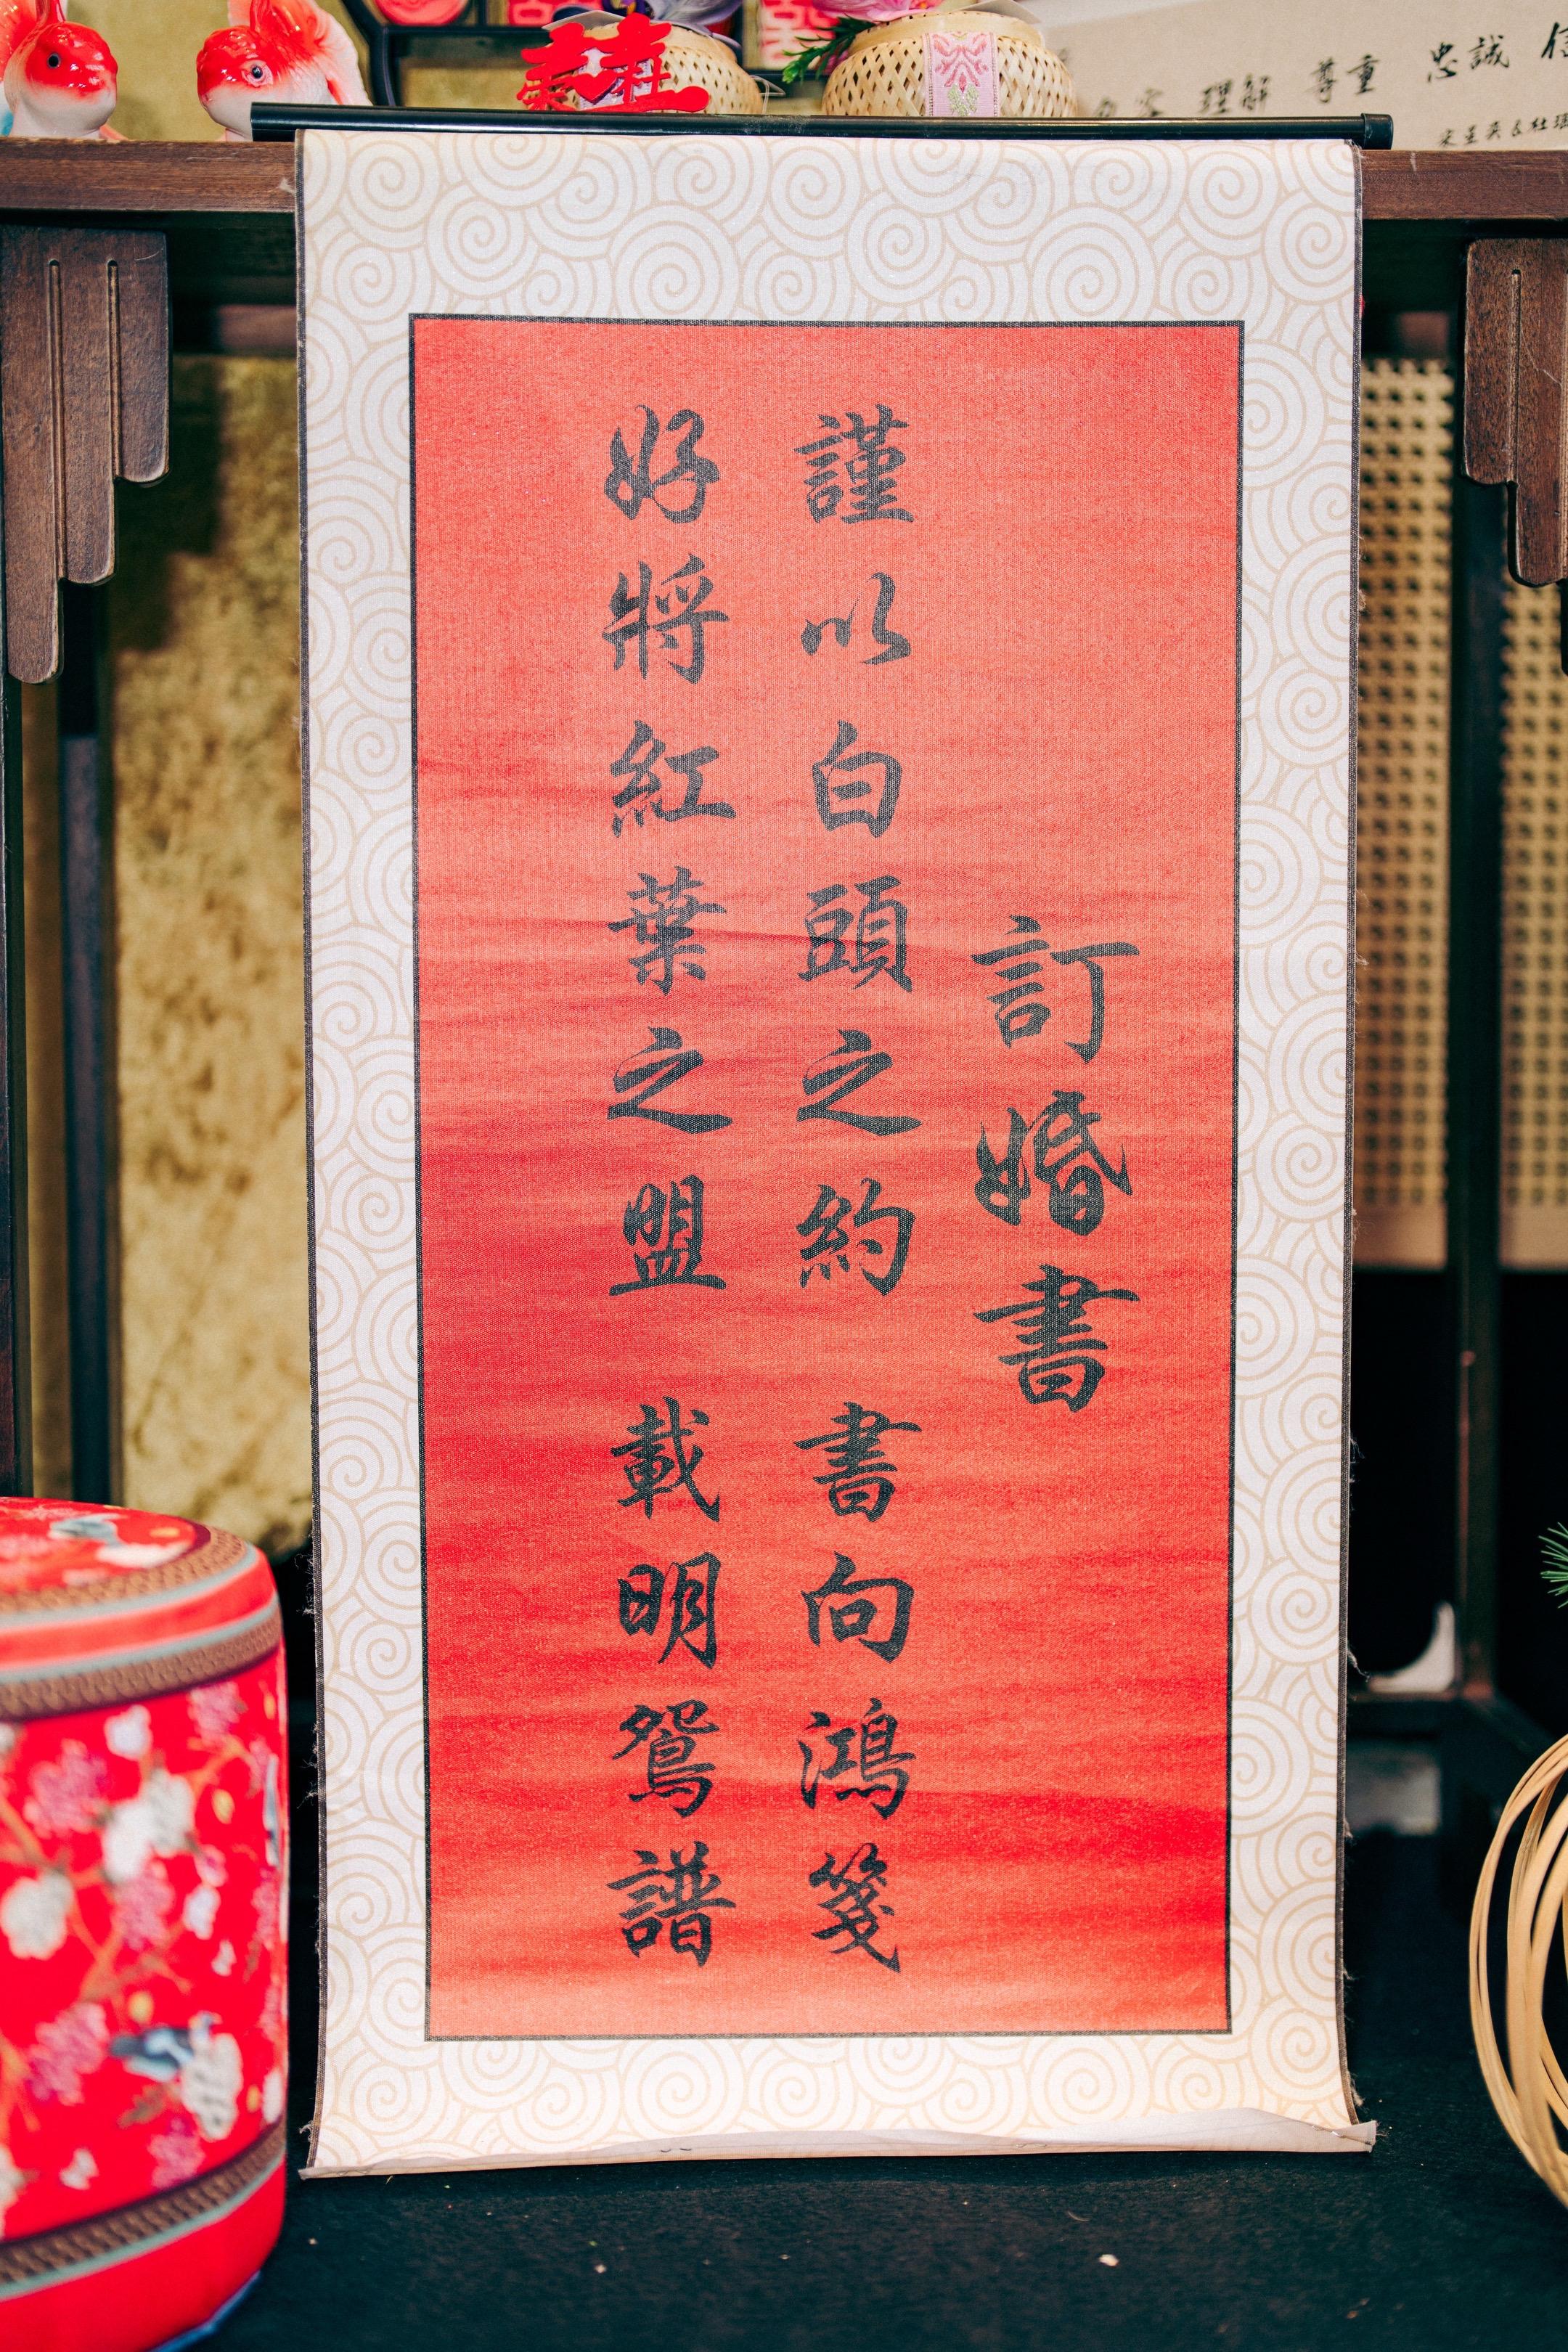 訂婚書
謹以白頭之約 書向鴻箋
好將紅葉之盟 載明鴛譜
理解 尊重 忠誠